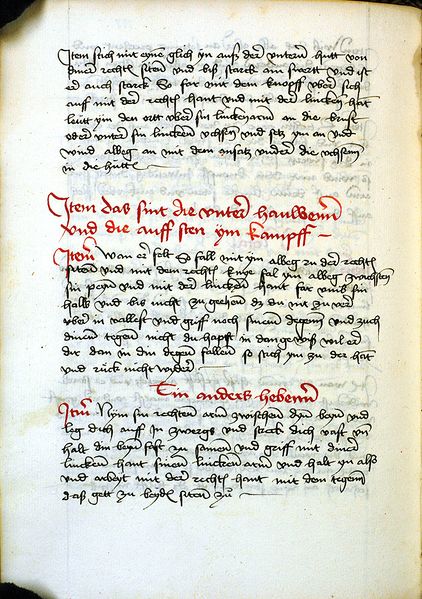 Item stich mit eyne glich yn auß der untern hutt von
diner rechtn sitenn und biß starck am swertt und ist
er auch starck So far mit dem knopff uber sich
auff mit der rechtn hant und mit der linckenn hat
leitt yn den ortt uber sin linckenarm an die brust
oder unter sin linckenn uchsenn und setz yn an und
wind albeg an mit dem ansatz under die uchsenn
in die hutten
Item das sint die untern haulwenn
und die auff sten ym kampff
Item Wan er felt So fall mit ym albeg zu der rechtn
sittenn und mit dem rechtn knye fal ym albeg zwischenn
sin peyn und mit der linckenn hant far umb sin
halß und biß nicht zu gechen dz du nit zu verr
uber in vallest und griff noch sinem degenn und zuch
dinem tegenn nicht du hapst in dan gewiß wil er
dir dan in din degen fallenn so stich ym zu der hat
und ruck nicht wyder
Ein anders hebenn
Item Nym sin rechten arm zwischen dyn beyn und
leg dich auff in zwergs und streck dich vast und
halt din beyn fest zu samen und griff mit diner
linckenn hant sinenn linckenn arm und halt yn also
und arbeyt mit der rechtn hant mit dem tegenn
daß gett zu beydn sitenn zu